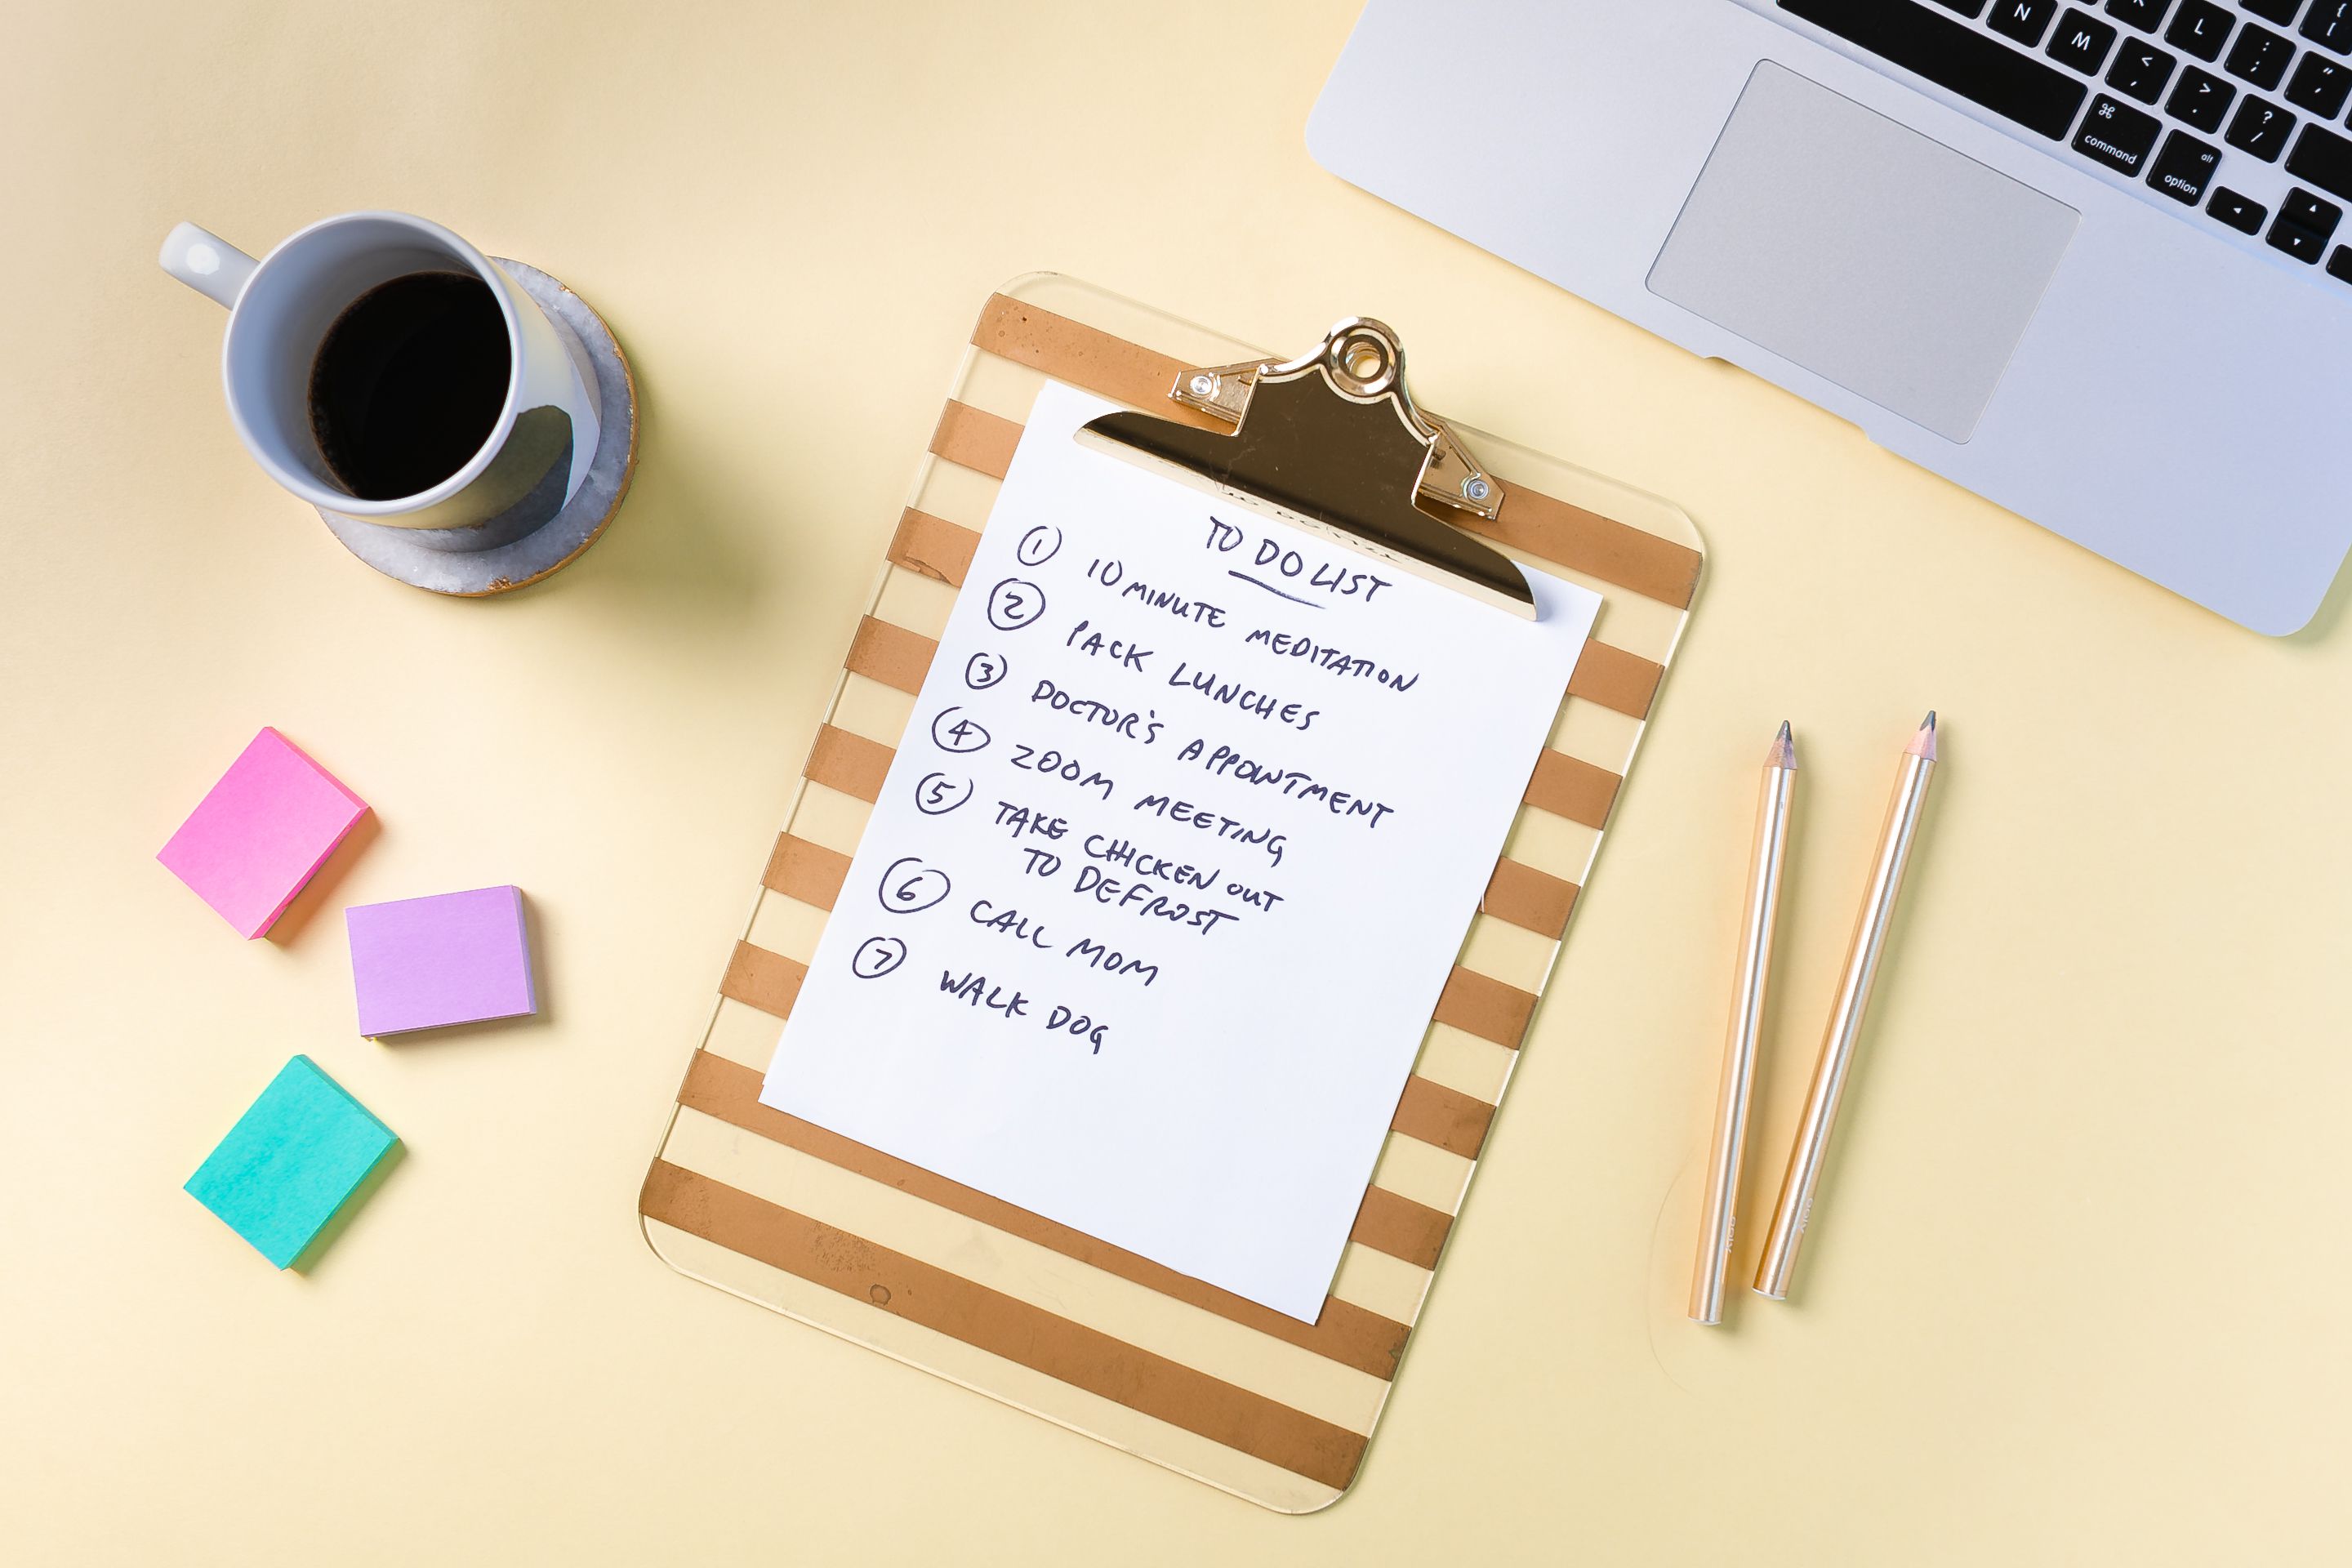 TO DO LIST
1 10 MINUTE MEDITATION
2 PACK LUNCHES
3 DOCTOR'S APPOINTMENT
4 ZOOM MEETING
5 TAKE CHICKEN OUT
TO DEFROST
6 CALL MOM
7 WALK DOG
N M < , > . ? /
L : ; " '
⌘ command
alt option